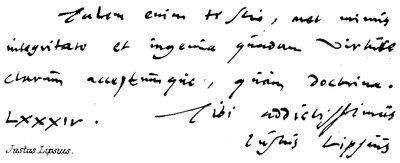 Talem enim te scio, nec minus
integritate et ingenua quadam virtute
clarum acceptumque, quam doctrina.
LXXXIV. Tibi addictissimus
Justus Lipsius
Justus Lipsius.